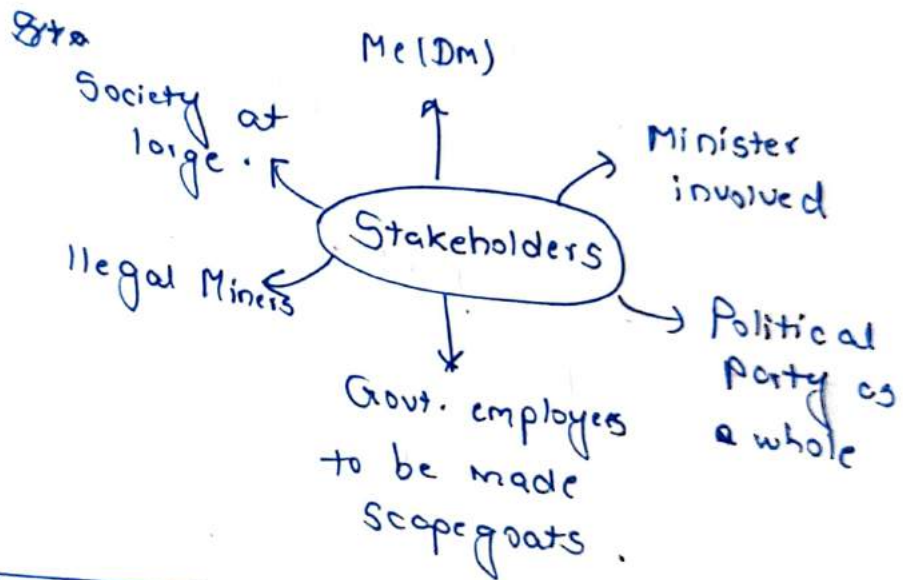 Sta
Me (DM)
Society at
large.
Minister
involved
Stakeholders
Illegal Miners
Political
Party as
a whole
Govt. employees
to be made
Scapegoats.